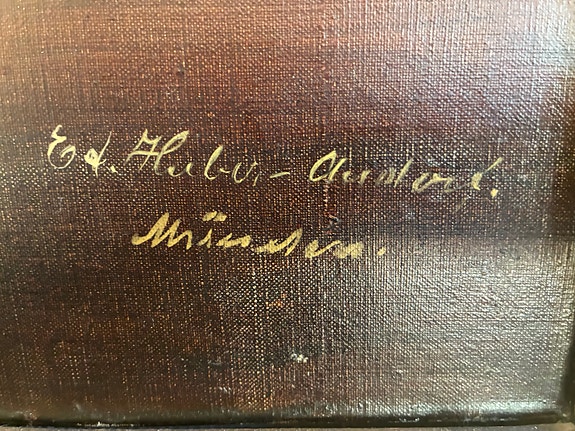 Ed. Huber-Andorf.
München.